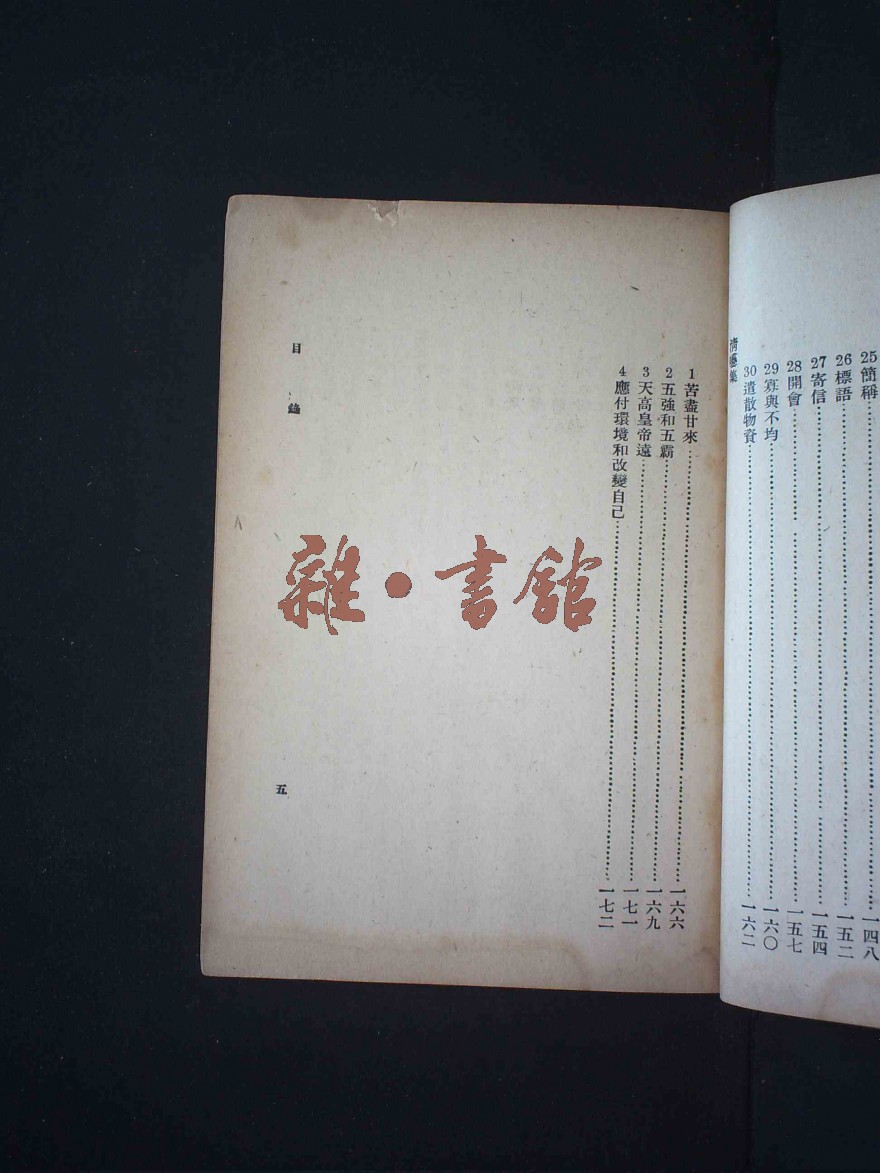 25簡稱……一四八
26標語……一五二
27寄信……一五四
28開會……一五七
29寡與不均……一六〇
30遣散物資……一六二
1苦盡甘來……一六六
2五強和五霸……一六九
3天高皇帝遠……一七一
4應付環境和改變自己……一七二
目錄
五
雜·書館